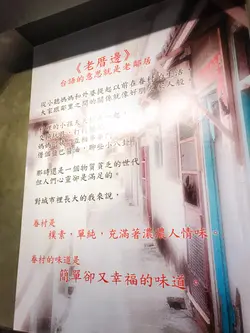 《老厝邊》
台語的意思就是老鄰居
從小聽媽媽和外婆提起以前在眷村的生活
大家跟鄰里之間的關係就像好朋友家人般
那時這是一個物質貧乏的世代
但人們心靈卻是滿足的。
對城市裡長大的我來說，
眷村是
樸素、單純，充滿著濃濃人情味。
眷村的味道是
簡單卻又幸福的味道。